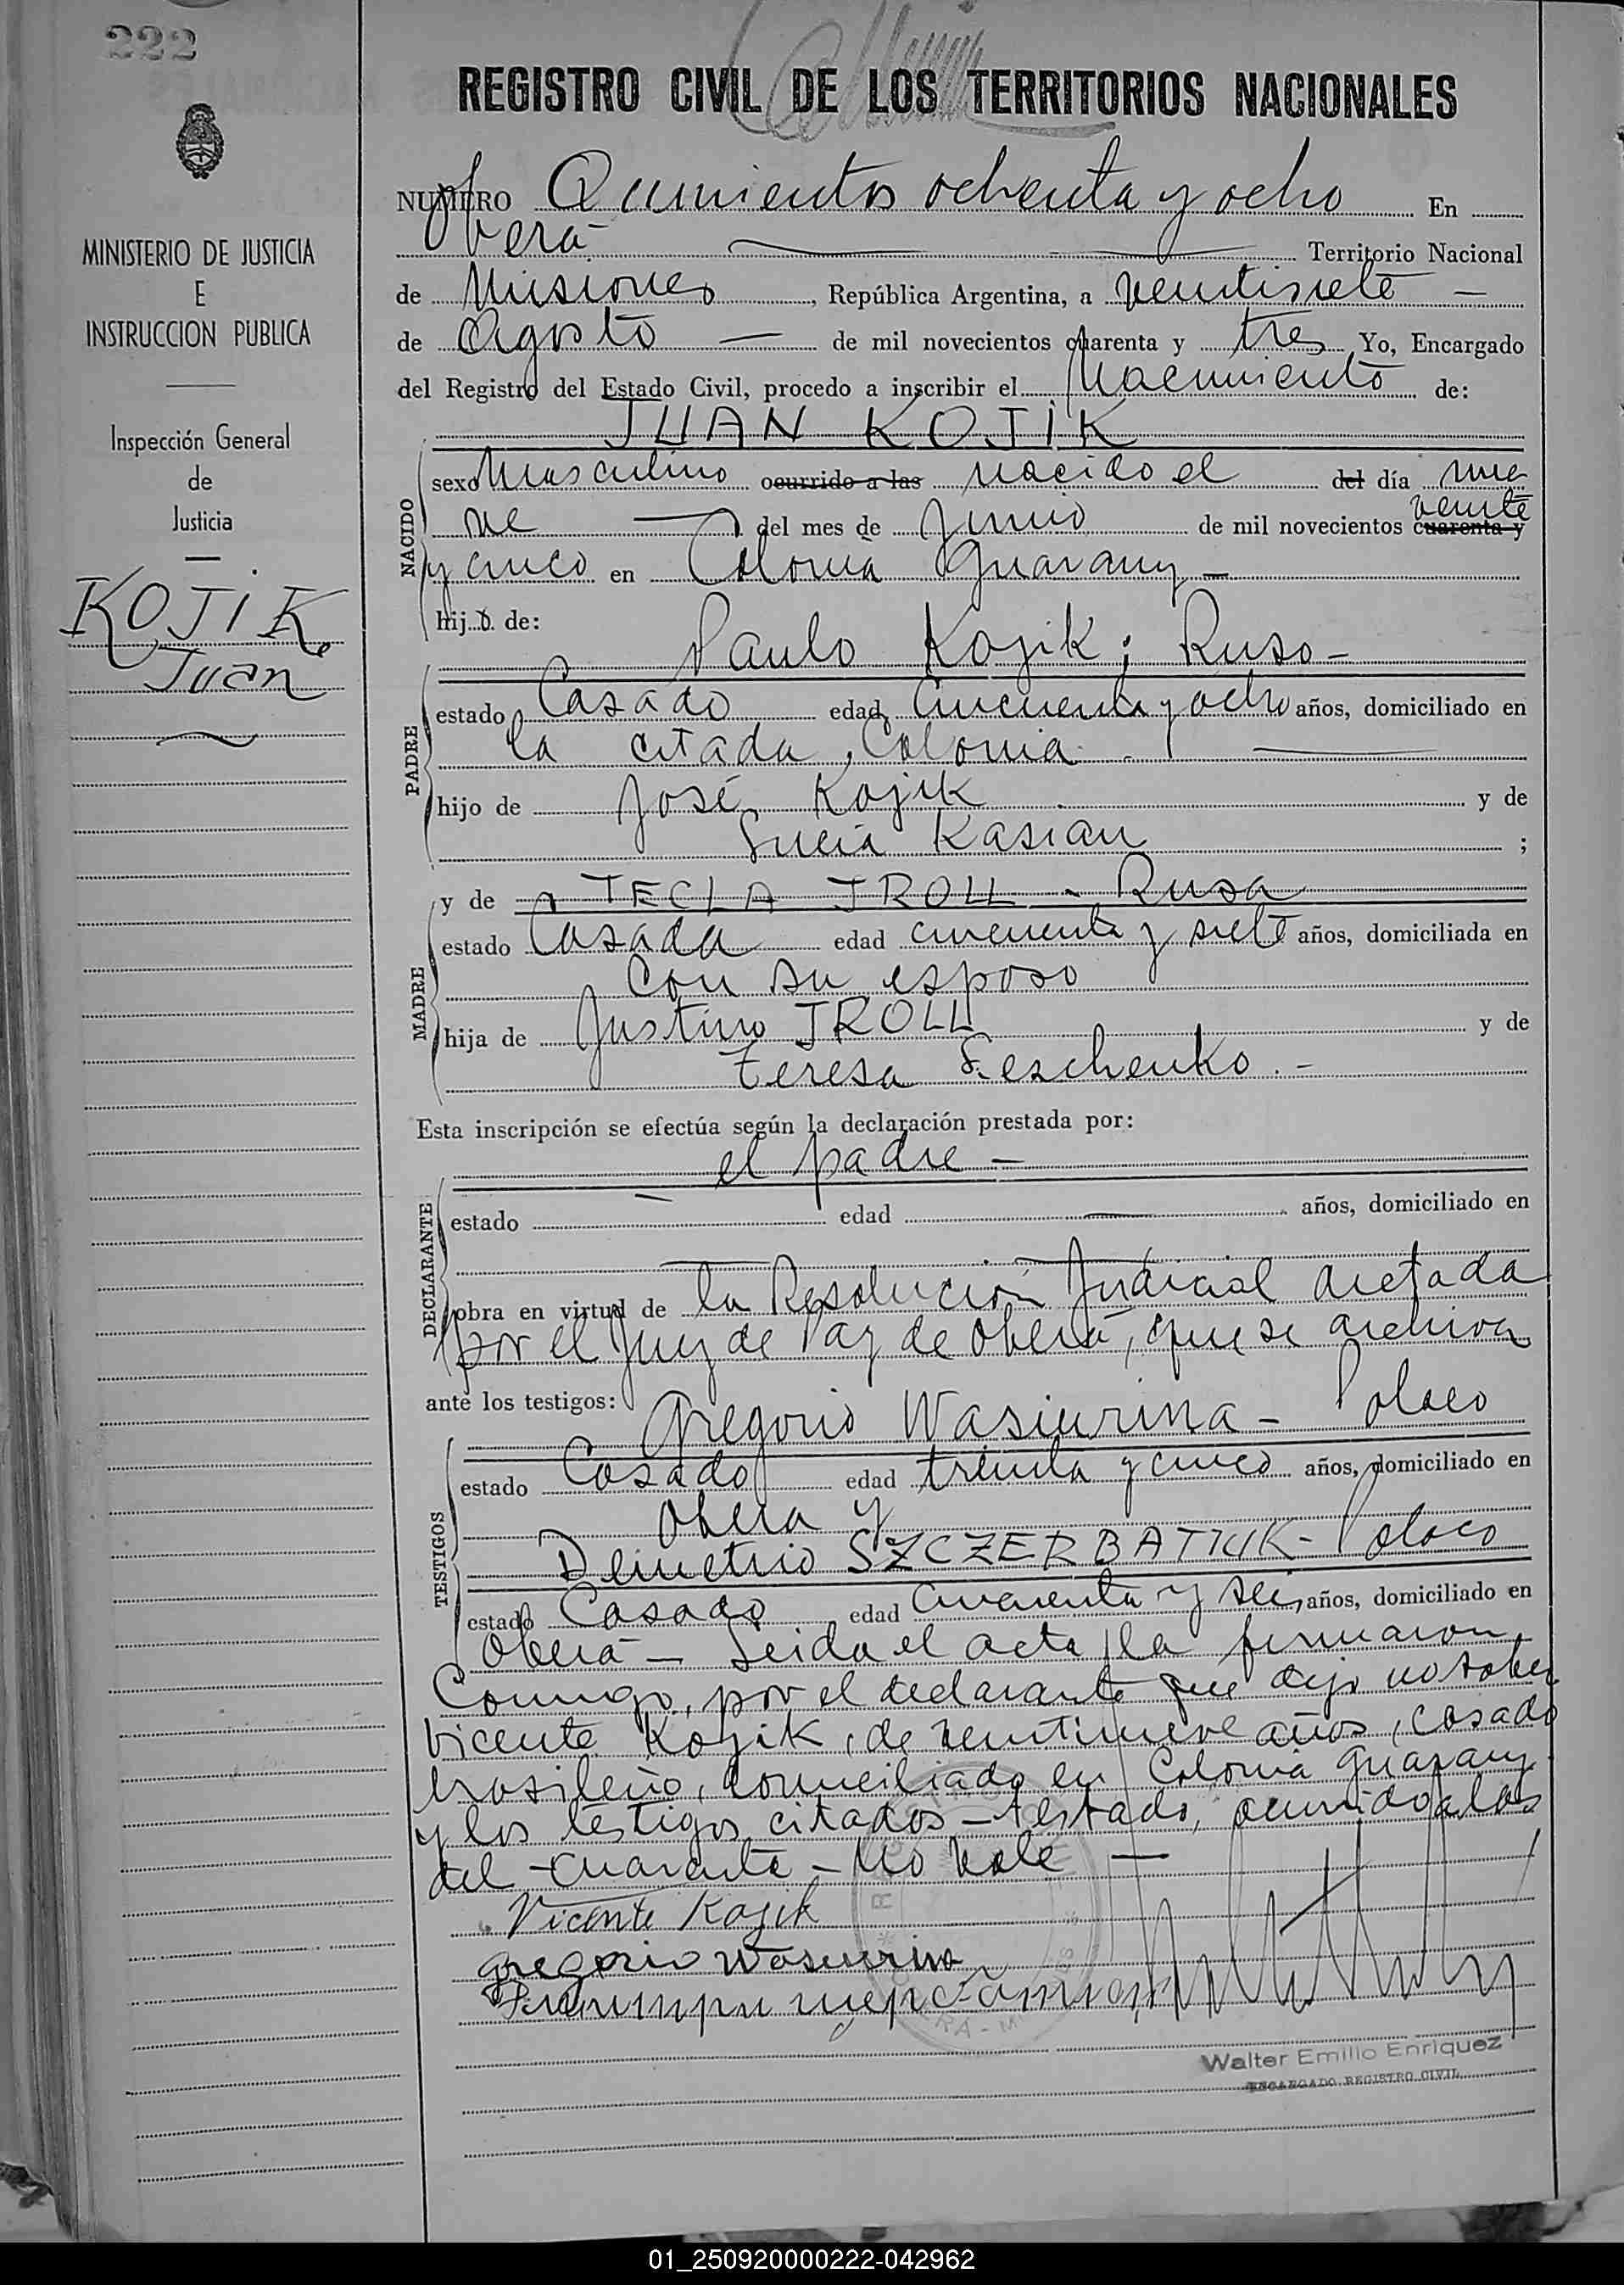 222
REGISTRO CIVIL DE LOS TERRITORIOS NACIONALES
MINISTERIO DE JUSTICIA
E
INSTRUCCION PUBLICA
Inspección General
de
Justicia
KOJIK
Juan
NUMERO Quinientos ochenta y ocho En
Oberá Territorio Nacional
de Misiones, República Argentina, a veintisiete
de Agosto de mil novecientos cuarenta y tres Yo, Encargado
del Registro del Estado Civil, procedo a inscribir el Nacimiento de:
JUAN KOJIK
NACIDO
sexo Masculino ocurrido a las nacido el del día nue
ve del mes de Junio de mil novecientos cuarenta y veinte
y cinco en Colonia Guarany
hijo de:
PADRE
Paulo Kojik; Ruso
estado Casado edad Cincuenta y ocho años, domiciliado en
la citada Colonia
hijo de José Kojik y de
Lucía Kasian ;
MADRE
y de TECLA TROLL - Rusa
estado Casada edad cincuenta y siete años, domiciliada en
con su esposo
hija de Justino TROLL y de
Teresa Leschenko.-
Esta inscripción se efectúa según la declaración prestada por:
DECLARANTE
el padre
estado edad años, domiciliado en
obra en virtud de la Resolución Judicial dictada
por el Juez de Paz de Oberá, que se archiva
ante los testigos:
TESTIGOS
Gregorio Wasiurina - Polaco
estado Casado edad treinta y cinco años, domiciliado en
Oberá y
Demetrio SZCZERBATIUK - Polaco
estado Casado edad Cuarenta y seis años, domiciliado en
Oberá - Leida el acta, la firmaron
Conmigo, por el declarante que dijo no saber
Vicente Kojik, de veintinueve años, casado
brasileño, domiciliado en Colonia Guarany
y los testigos citados - testado, ocurrido a las
del - cuarenta - No Vale
Vicente Kojik
Gregorio Wasiurina
Walter Emilio Enriquez
ENCARGADO REGISTRO CIVIL
01_250920000222-042962